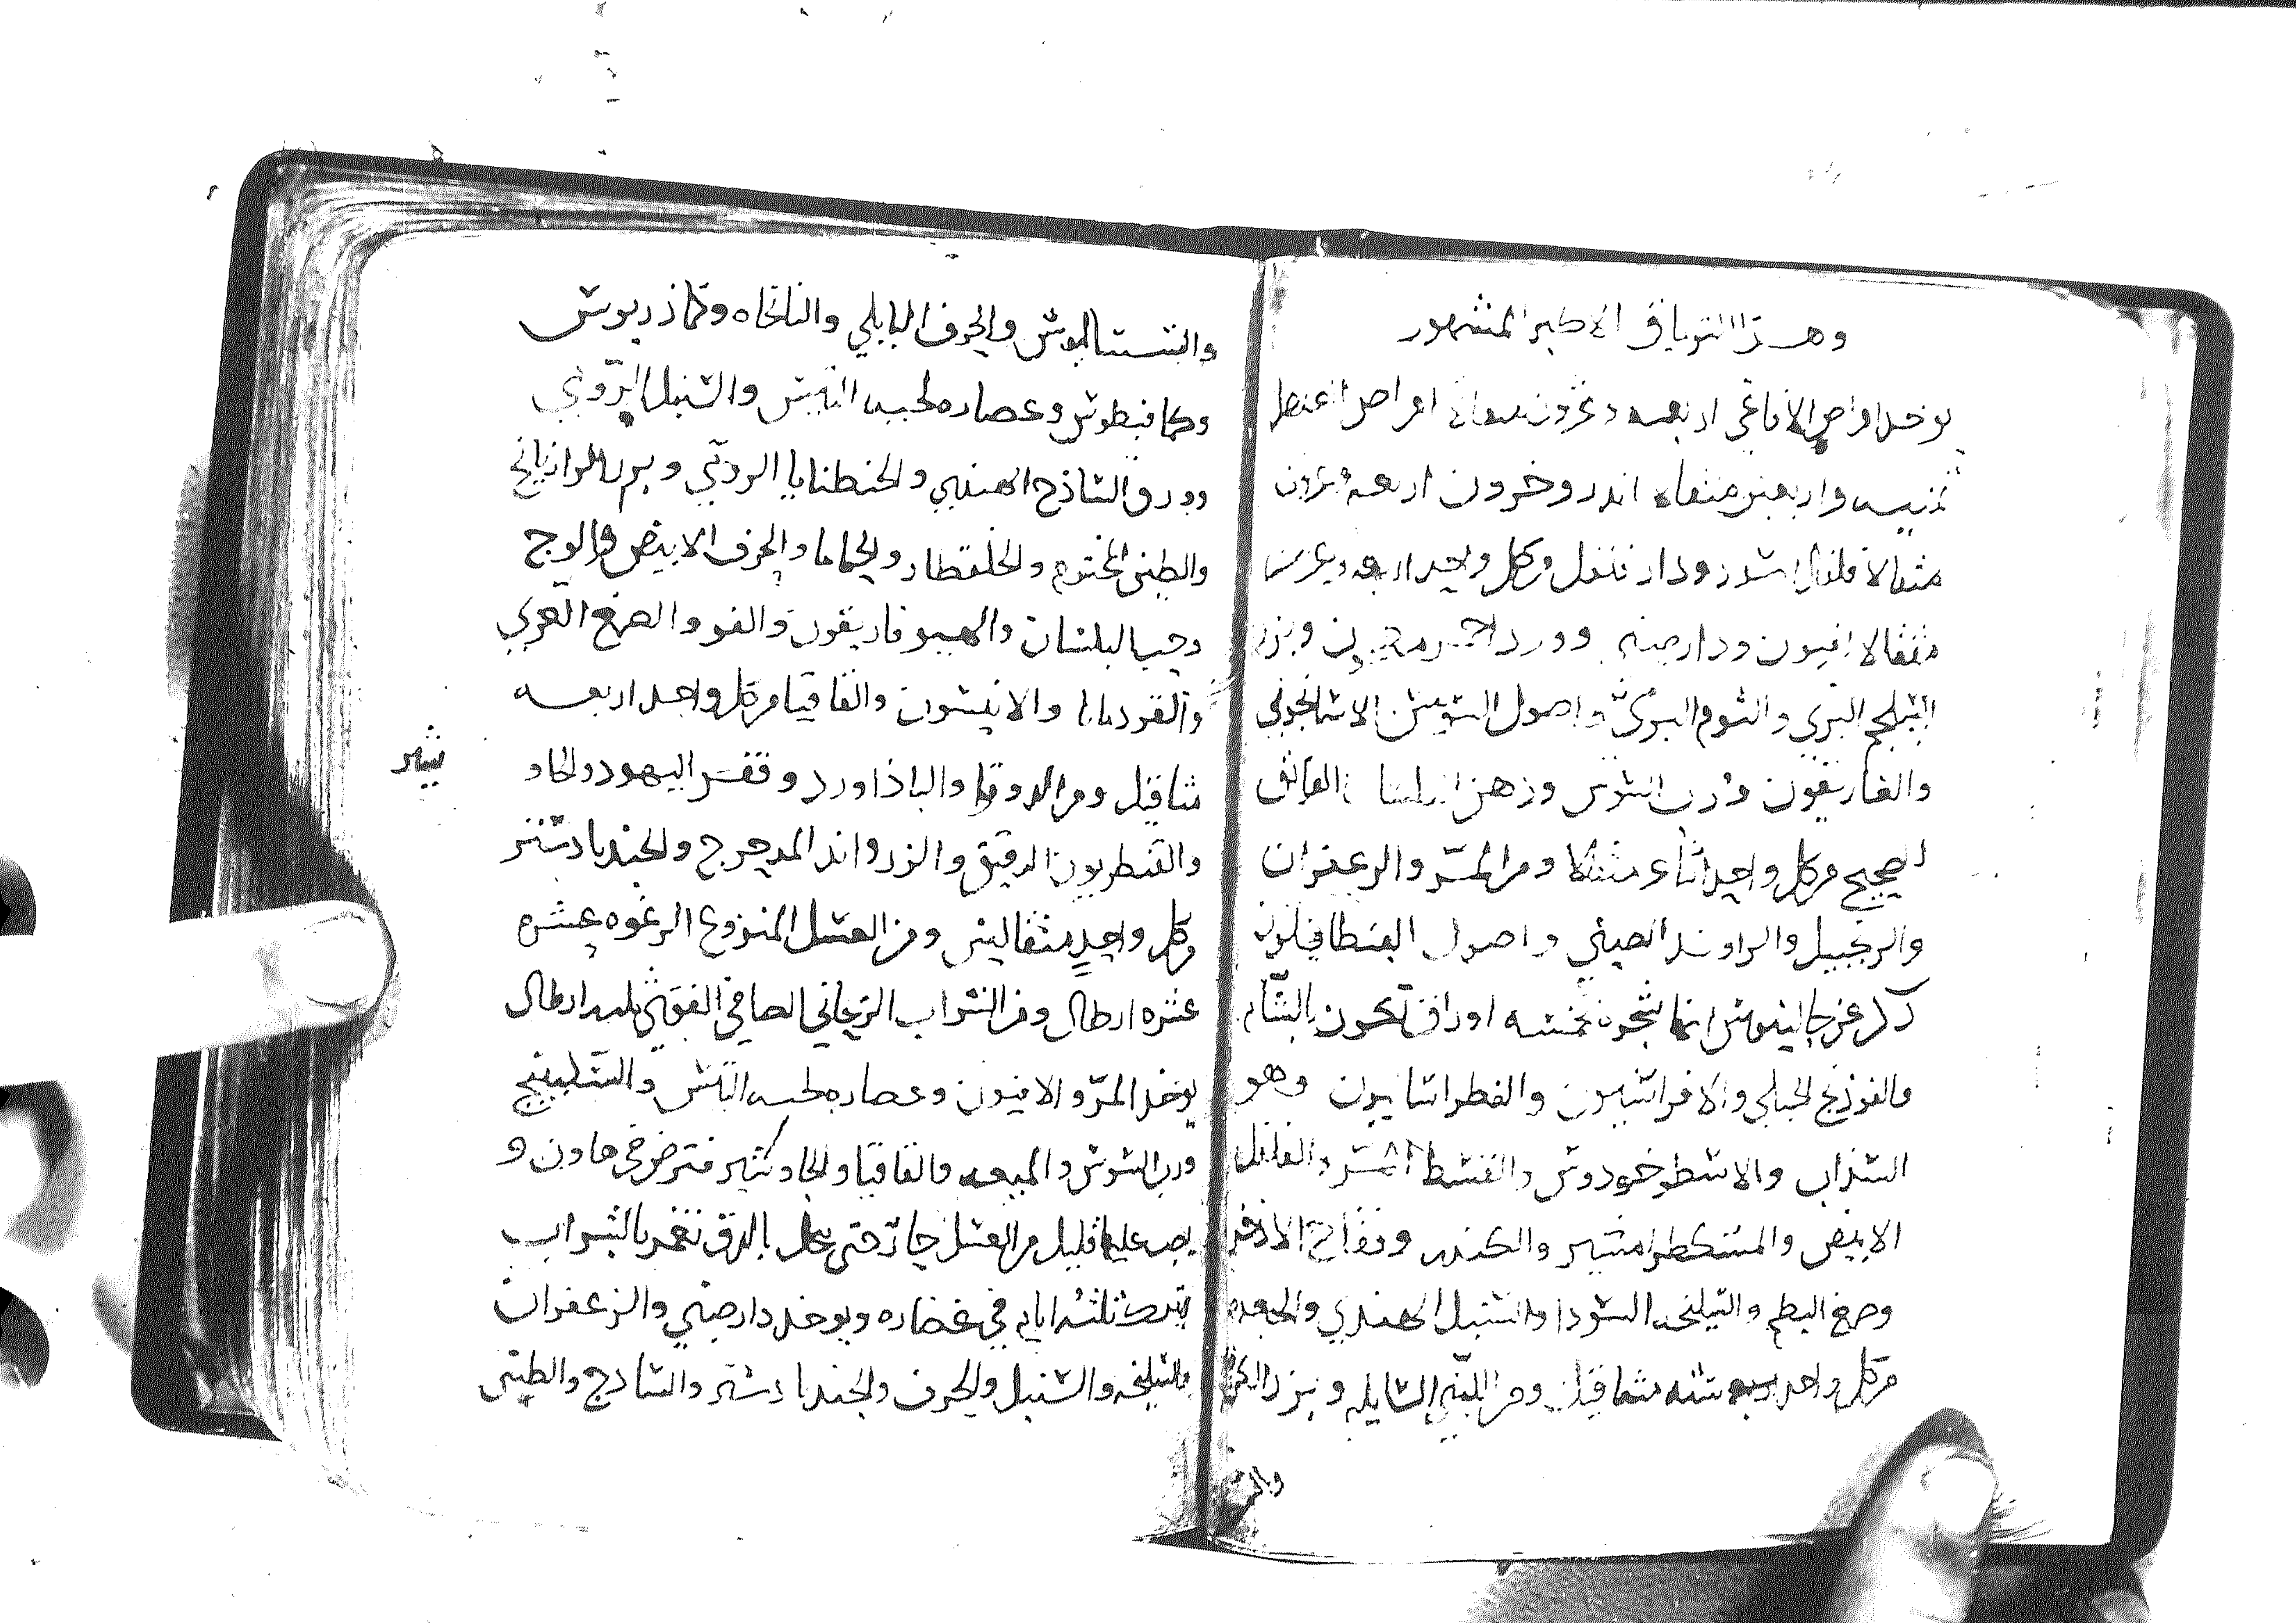 وهذا الترياق الاكبر المشهور
يوخذ اقراص الافاعي اربعه وعشرون مثقالا اقراص العنصل
ثمنيه واربعين مثقالا اندروخرون اربعه وعشرين
مثقالا فلفل اسود ودار فلفل من كل واحد اربعه وعشرين
مثقالا افيون ودارصيني وورد احمر وبزر
الشلجم البري والثوم البري واصول السوسن الاسمانجوني
والغاريقون ورب السوس ودهن البلسان الفايق
الصحيح من كل واحد اثنا عشر مثقالا ومن المر والزعفران
والزنجبيل والراوند الصيني واصول الفنطافلون
ذكر عن جالينوس انها شجره بخمسه اوراق تكون بالشام
والفوذنج الجبلي والافراسيون والفطراساليون وهو
السذاب والاسطوخودوس والقسط المر والفلفل
الابيض والمشكطرامشير والكندر وفقاح الاذخر
وصمغ البطم والسليخه السودا والسنبل الهندي والجعده
من كل واحد سته مثاقيل ومن اللبني السايله وبزر الكرفس
والسساليوس والحرف البابلي والنانخاه وكماذريوس
وكمافيطوس وعصاره لحيه التيس والسنبل الرومي
وورق الساذج الهندي والجنطيانا الرومي وبزر الرازيانج
والطين المختوم والخلقطار والحاما والحرف الابيض والوج
وحب البلسان والهيوفاريقون والفو والصمغ العربي
والقردمانا والانيسون والقاقيا من كل واحد اربعه
مثاقيل ومن الدوقوا والباذاورد وقفر اليهود والجاو
شير
والقنطريون الدقيق والزرواند المدحرج والجندبادستر
من كل واحد مثقالين ومن العسل المنزوع الرغوه عشره
عشره ارطال ومن الشراب الريحاني الصافي القوي ثلثه ارطال
يوخذ المر والافيون وعصاره لحيه التيس والسكبينج
ورب السوس والميعه والقاقيا والجاوشير فترض في هاون و
يصب عليها قليل من العسل حتى ينحل بالدق تغمر بالشراب
ويترك ثلثه ايام في غضاره ويوخذ دارصيني والزعفران
والسليخه والسنبل والحرف والجندبادستر والساذج والطين